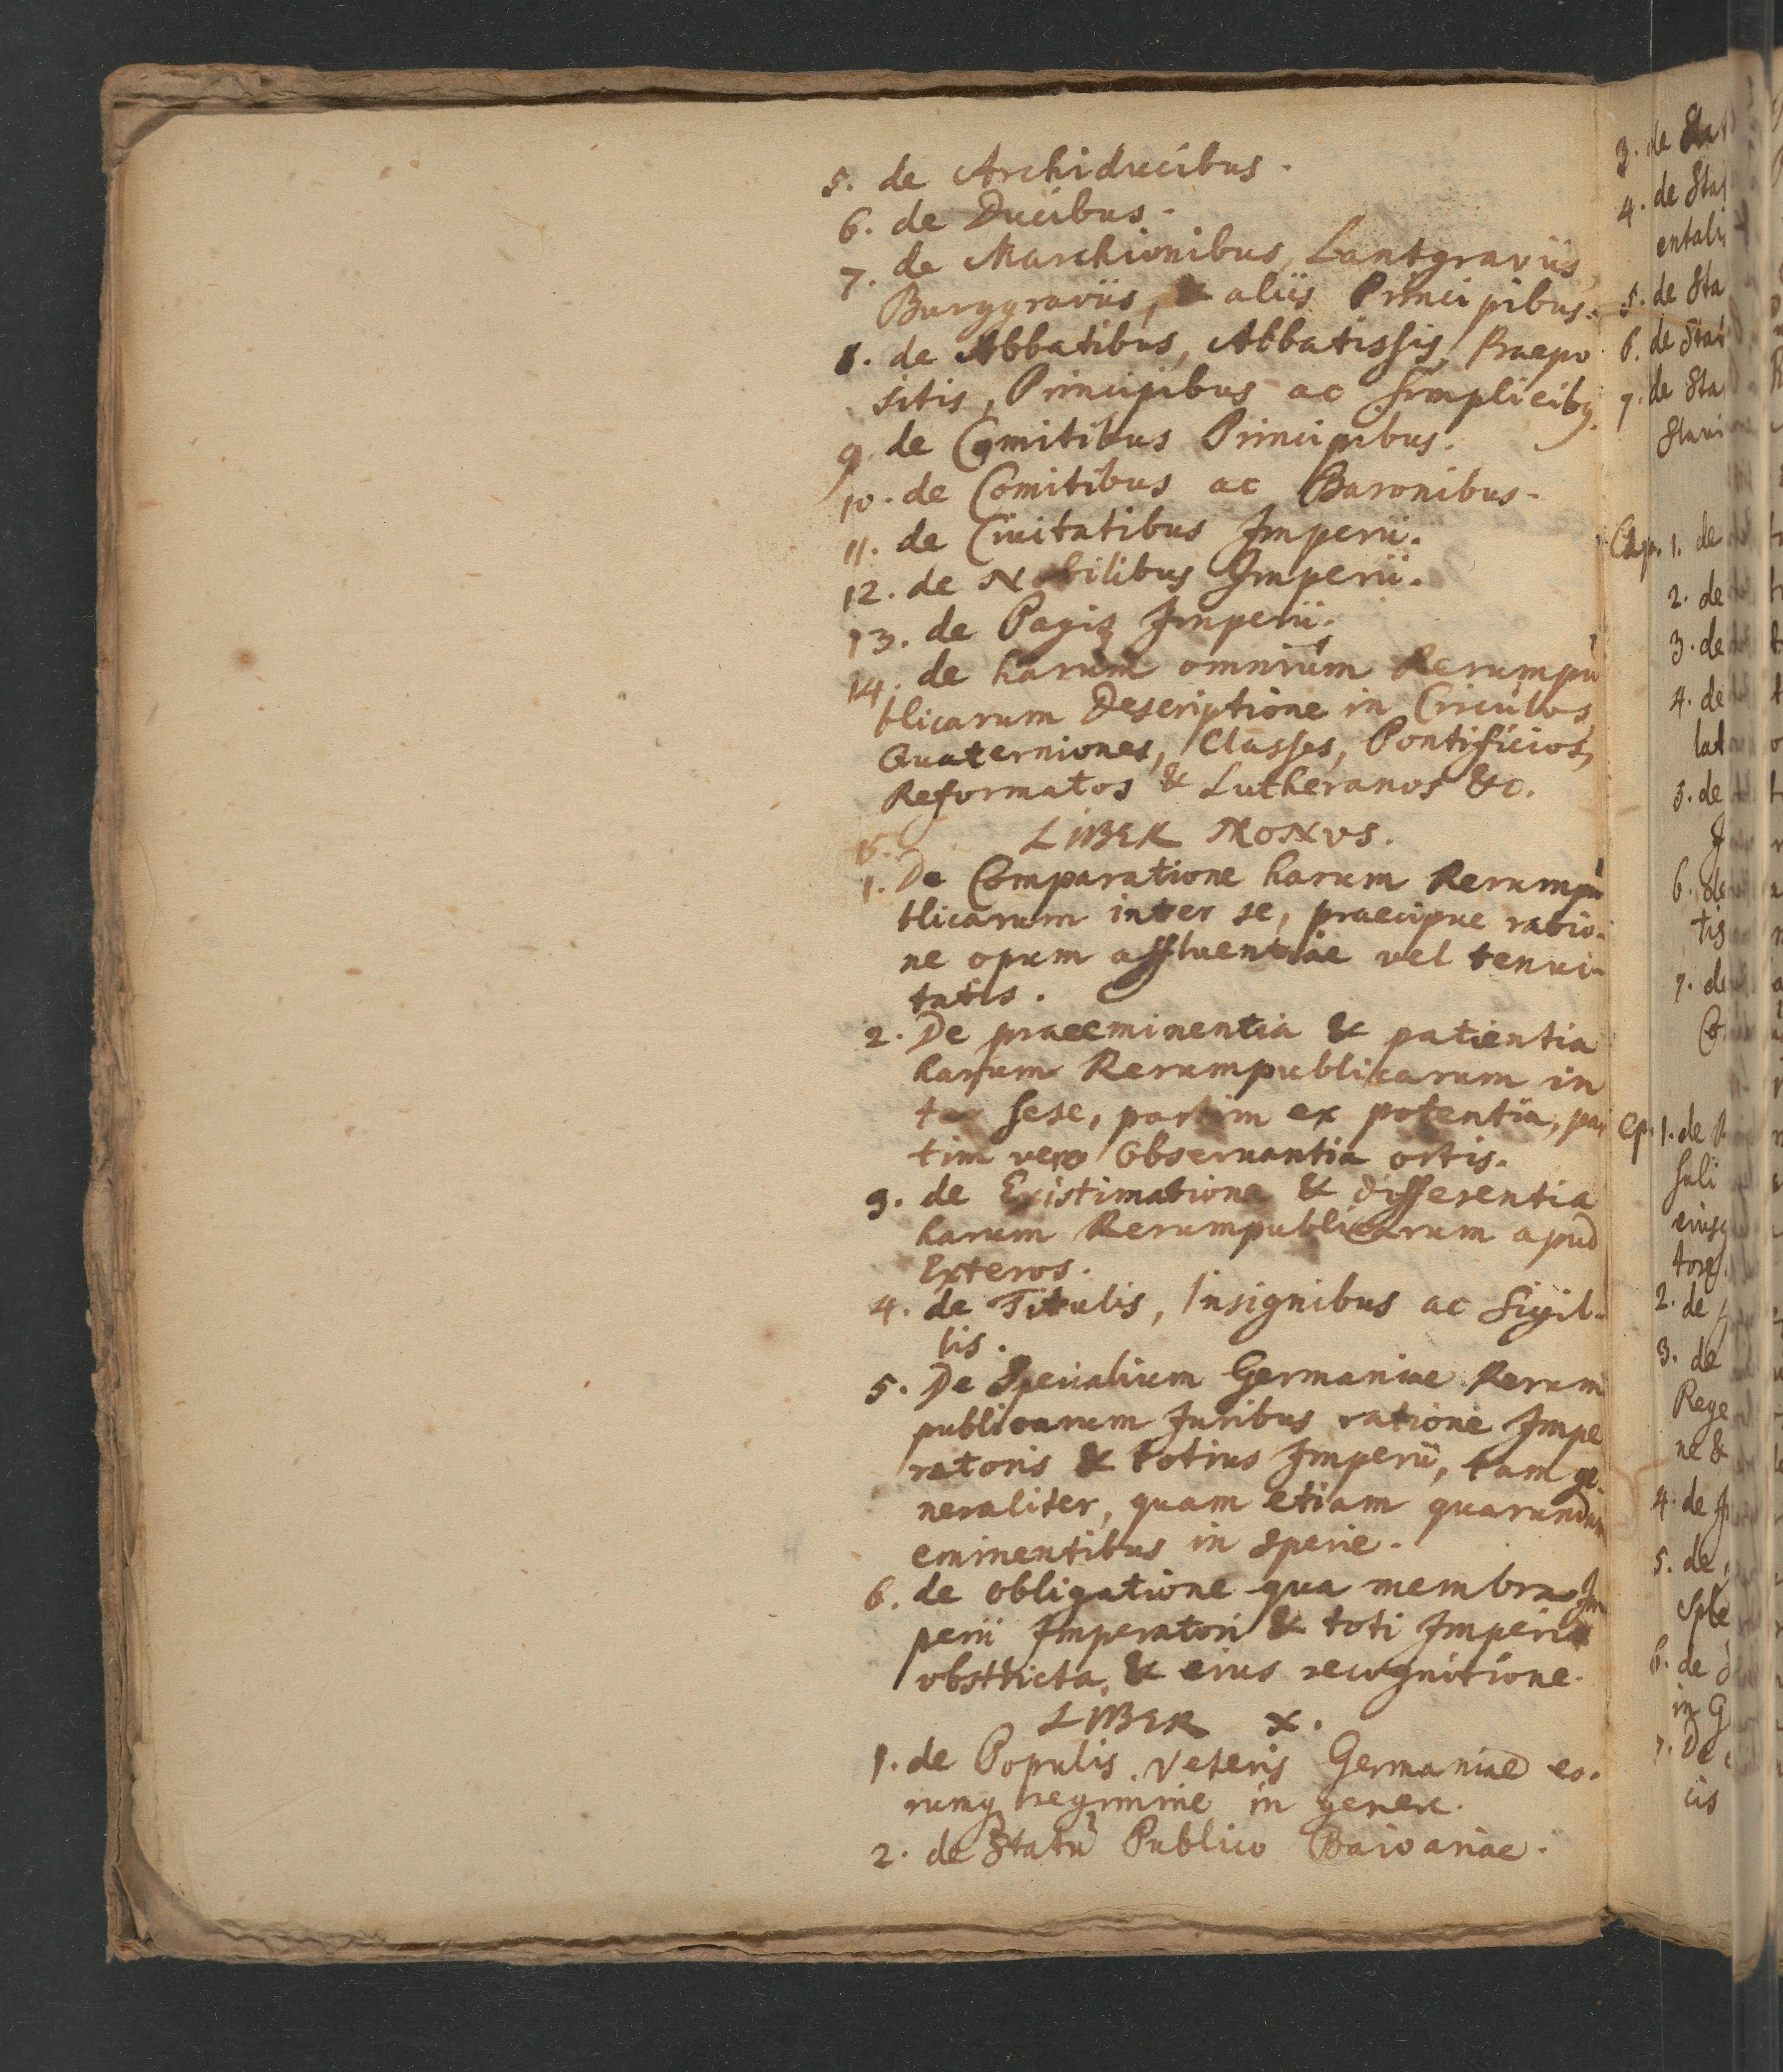 5. de Archiducibus.
6. de Ducibus.
7. de Marchionibus, Lantgraviis,
Burggraviis, & aliis Principibus.
8. de Abbatibus, Abbatissis, Praepo
sitis, Principibus ac simplicibq.
9. de Comitibus Principibus.
10. de Comitibus ac Baronibus.
11. de Civitatibus Imperii.
12. de Nobilibus Imperii.
13. de Pagis Imperii.
14. de harum omnium Rerumpu
blicarum Descriptione in Circulos,
Quaterniones, Classes, Pontificios,
Reformatos & Lutheranos &c.
15. LIBER NONVS.
1. De Comparatione harum Rerumpu
blicarum inter se, praecipue ratio-
ne opum affluentiae vel tenui-
tatis.
2. De praeeminentia & patientia
harum Rerumpublicarum in
ter sese, partim ex potentia, par
tim vero Observantia ortis.
3. de Existimatione & differentia
harum Rerumpublicarum apud
Exteros.
4. de Titulis, Insignibus ac Sigil-
lis.
5. De Specialium Germaniae Rerum
publicarum Juribus ratione Impe
ratoris & totius Imperii, tam ge-
neraliter, quam etiam quarundam
eminentibus in specie.
6. de obligatione qua membra Im
perii Imperatori & toti Imperio
obstricta, & eius recognitione.
LIBER X.
1. de Populis Veteris Germaniae eo-
rumq regimine in genere.
2. de Statu Publico Baioariae.
3. de Stat
4. de Stat
entali
5. de Sta
6. de Stat
7. de Sta
Slavi
Cap. 1. de
2. de
3. de
4. de
lat
5. de
6. de
tis
7. de
Cp. 1. de
eiusq
tores.
2. de
3. de
Rege
ne &
4. de
5. de
6. de
in G
7. De
cis